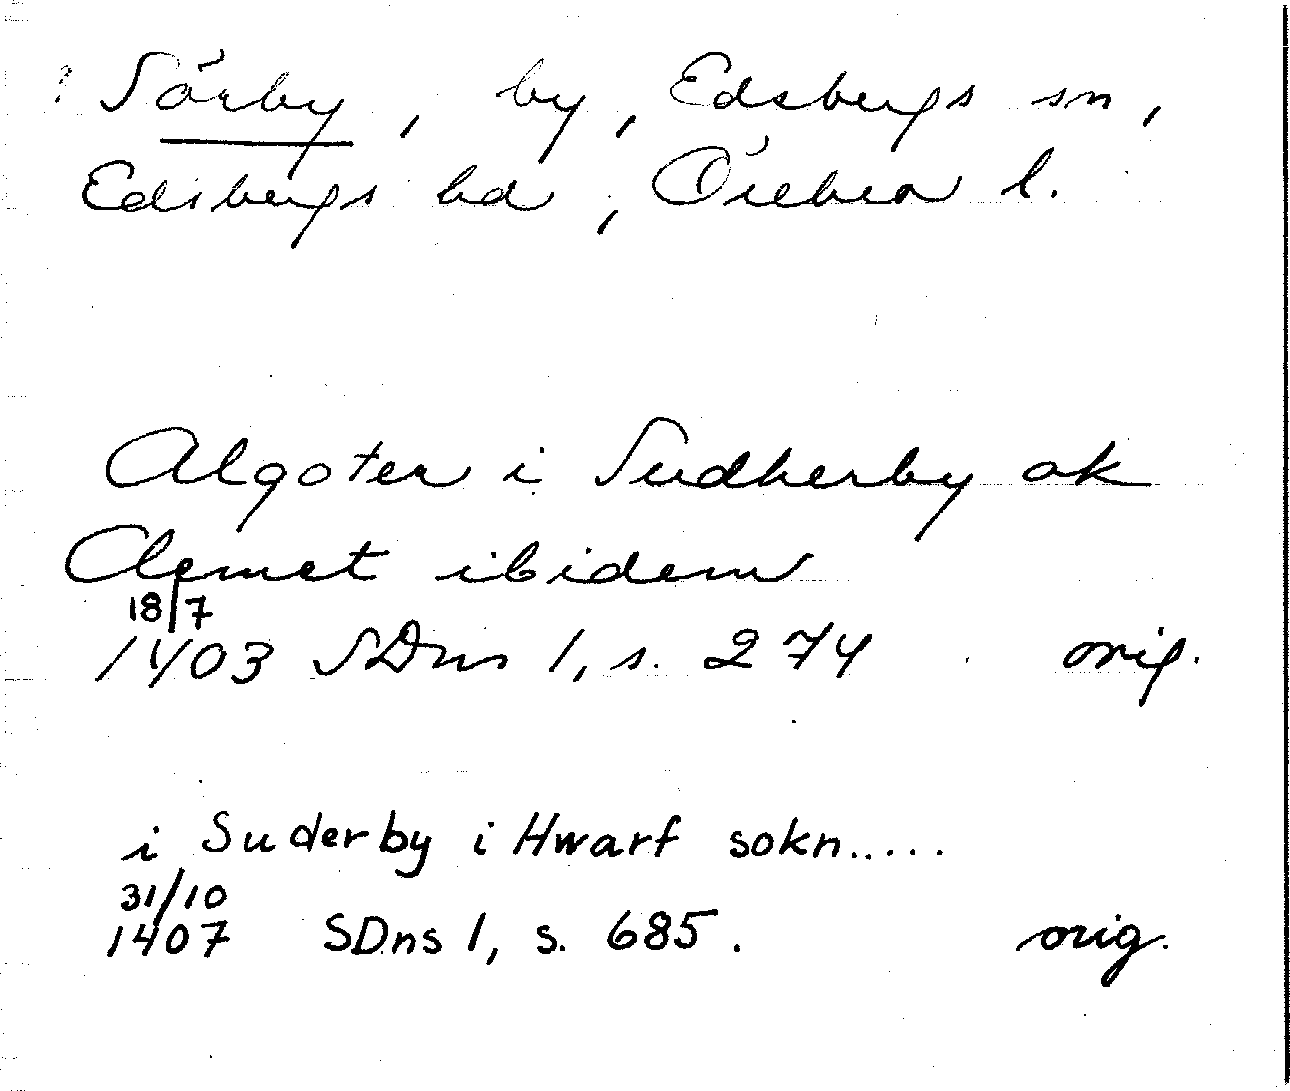 ? Sörby, by, Edsbergs sn,
Edsbergs hd, Örebro l.
Algoter i Sudherby ok
Clemet ibidem
18/7
1403 SDns 1, s. 274 orig.
i Suderby i Hwarf sokn.....
31/10
1407 SDns 1, s. 685. orig.